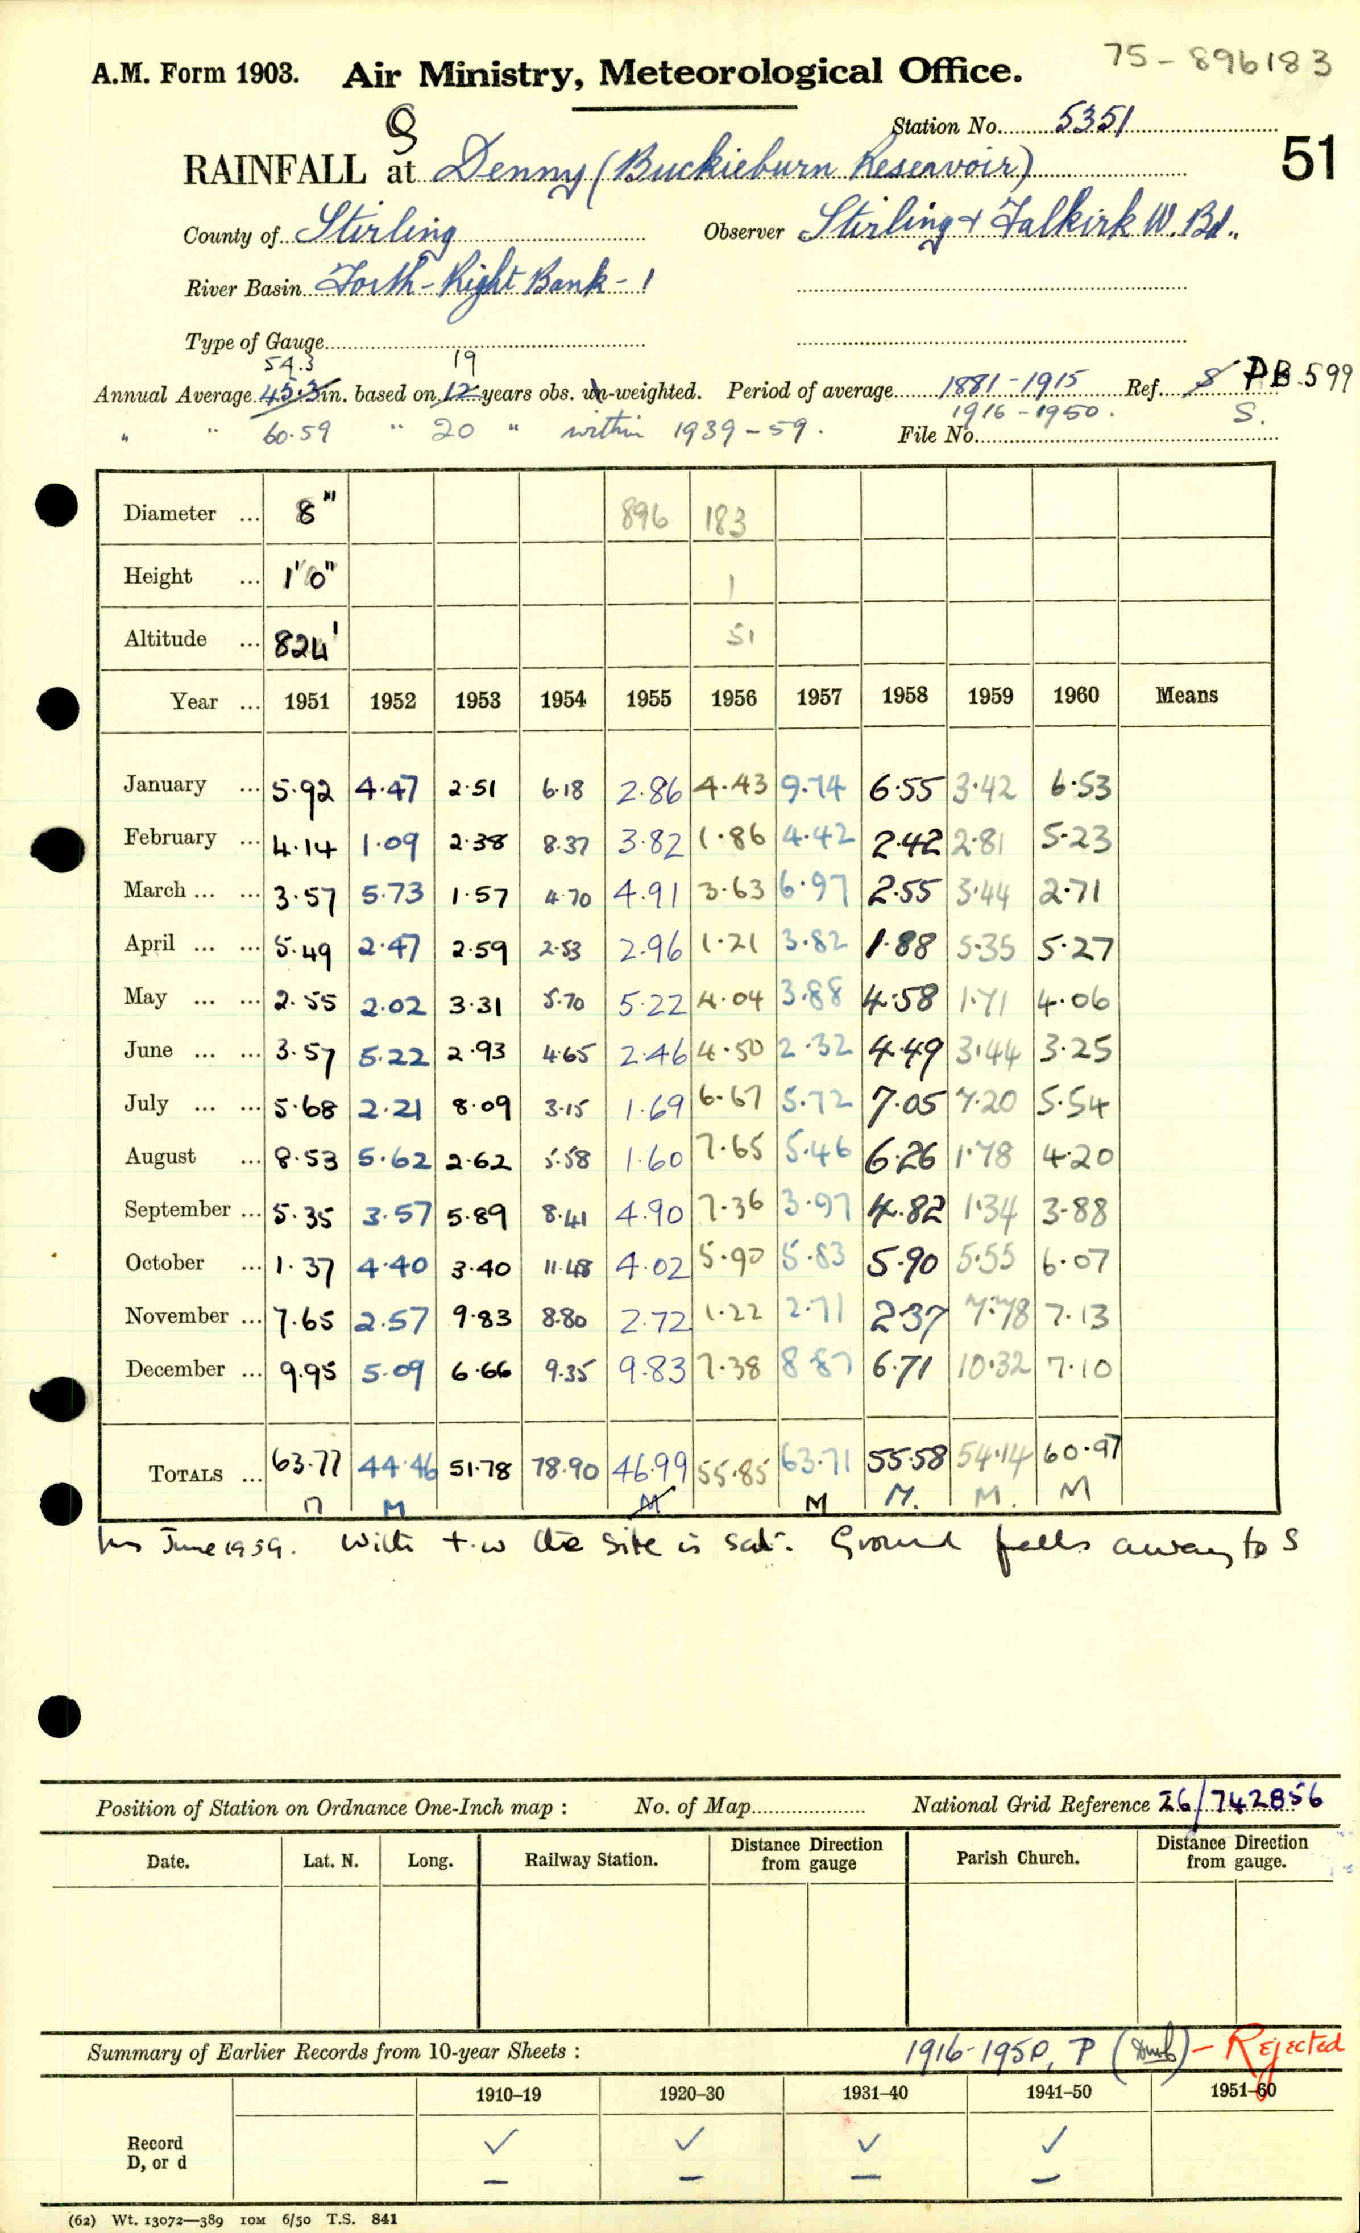 75-896183
A.M. Form 1903. Air Ministry, Meteorological Office.
Station No. 5351
51
RAINFALL at Denny (Buckieburn Reservoir)
County of Stirling Observer Stirling & Falkirk W. Bd.
River Basin Forth - Right Bank - 1
Type of Gauge
54.3 19
Annual Average 45.3 in. based on 12 years obs. un-weighted. Period of average 1881-1915 Ref. S PB.599
1916-1950. S.
" " 60.59 " 20 " within 1939-59. File No.
Diameter ... 8" 896 183
Height ... 1'0" 1
Altitude ... 824' 51
Year ... 1951 1952 1953 1954 1955 1956 1957 1958 1959 1960 Means
January ... 5.92 4.47 2.51 6.18 2.86 4.43 9.74 6.55 3.42 6.53
February ... 4.14 1.09 2.38 8.37 3.82 1.86 4.42 2.42 2.81 5.23
March ... ... 3.57 5.73 1.57 4.70 4.91 3.63 6.97 2.55 3.44 2.71
April ... ... 5.49 2.47 2.59 2.53 2.96 1.21 3.82 1.88 5.35 5.27
May ... ... 2.55 2.02 3.31 5.70 5.22 4.04 3.88 4.58 1.71 4.06
June ... ... 3.57 5.22 2.93 4.65 2.46 4.50 2.32 4.49 3.44 3.25
July ... ... 5.68 2.21 8.09 3.15 1.69 6.67 5.72 7.05 7.20 5.54
August ... 8.53 5.62 2.62 5.58 1.60 7.65 5.46 6.26 1.78 4.20
September ... 5.35 3.57 5.89 8.41 4.90 7.36 3.97 4.82 1.34 3.88
October ... 1.37 4.40 3.40 11.48 4.02 5.90 5.83 5.90 5.55 6.07
November ... 7.65 2.57 9.83 8.80 2.72 1.22 2.71 2.37 7.78 7.13
December ... 9.95 5.09 6.66 9.35 9.83 7.38 8.87 6.71 10.32 7.10
TOTALS ... 63.77 44.46 51.78 78.90 46.99 55.85 63.71 55.58 54.14 60.97
M M M M. M. M
June 1959. With t.w the site is sat. Ground falls away to S
Position of Station on Ordnance One-Inch map : No. of Map National Grid Reference 26/742856
Date. Lat. N. Long. Railway Station. Distance Direction from gauge Parish Church. Distance Direction from gauge.
Summary of Earlier Records from 10-year Sheets : 1916-1950, P - Rejected
1910-19 1920-30 1931-40 1941-50 1951-60
Record ✓ ✓ ✓ ✓
D, or d — — — —
(62) Wt. 13072—389 10M 6/50 T.S. 841